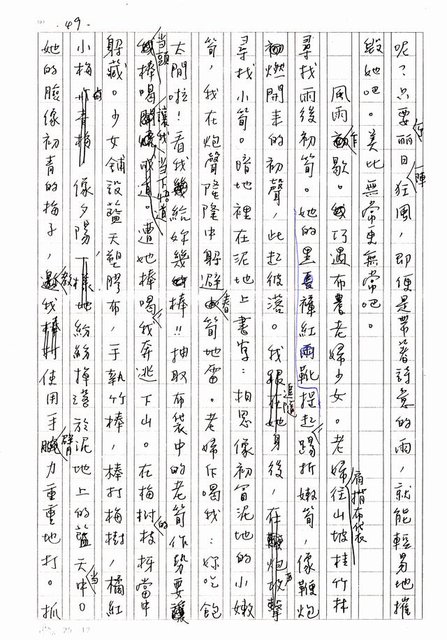 49.
呢？只要丽日在一陣狂風，即便是帶著詩意的雨，就能輕易地摧
毀她吧。美比無常更無常吧。
風雨乍歇。巧遇布農老婦少女。老婦肩揹布袋往山坡桂竹林
尋找雨後初筍。她的黑長褲紅雨靴提起，踢折嫩筍，像鞭炮
初燃開來的初聲，此起彼落。我追隨她身後，在鞭炮聲
尋找小筍。暗地裡在泥地上書寫：相思像初冒泥地的小嫩
筍，我在炮聲隆隆中躲避春筍地雷。老婦斥喝我：妳吃飽
太閒啦！看我給妳幾棒！！抽取布袋中的老筍作勢要讓
我當頭棒喝，讓我當下悟道。遭她棒喝，我奔逃下山。在梅樹的枝枒當中
躲藏。少女鋪設藍天塑膠布，手執竹棒，棒打梅樹，橘紅
小梅由青梅像夕陽一樣地紛紛掉落於泥地上的藍天中。當
她的臉緣初青的梅子，教我使用手臂力重重地打。抓